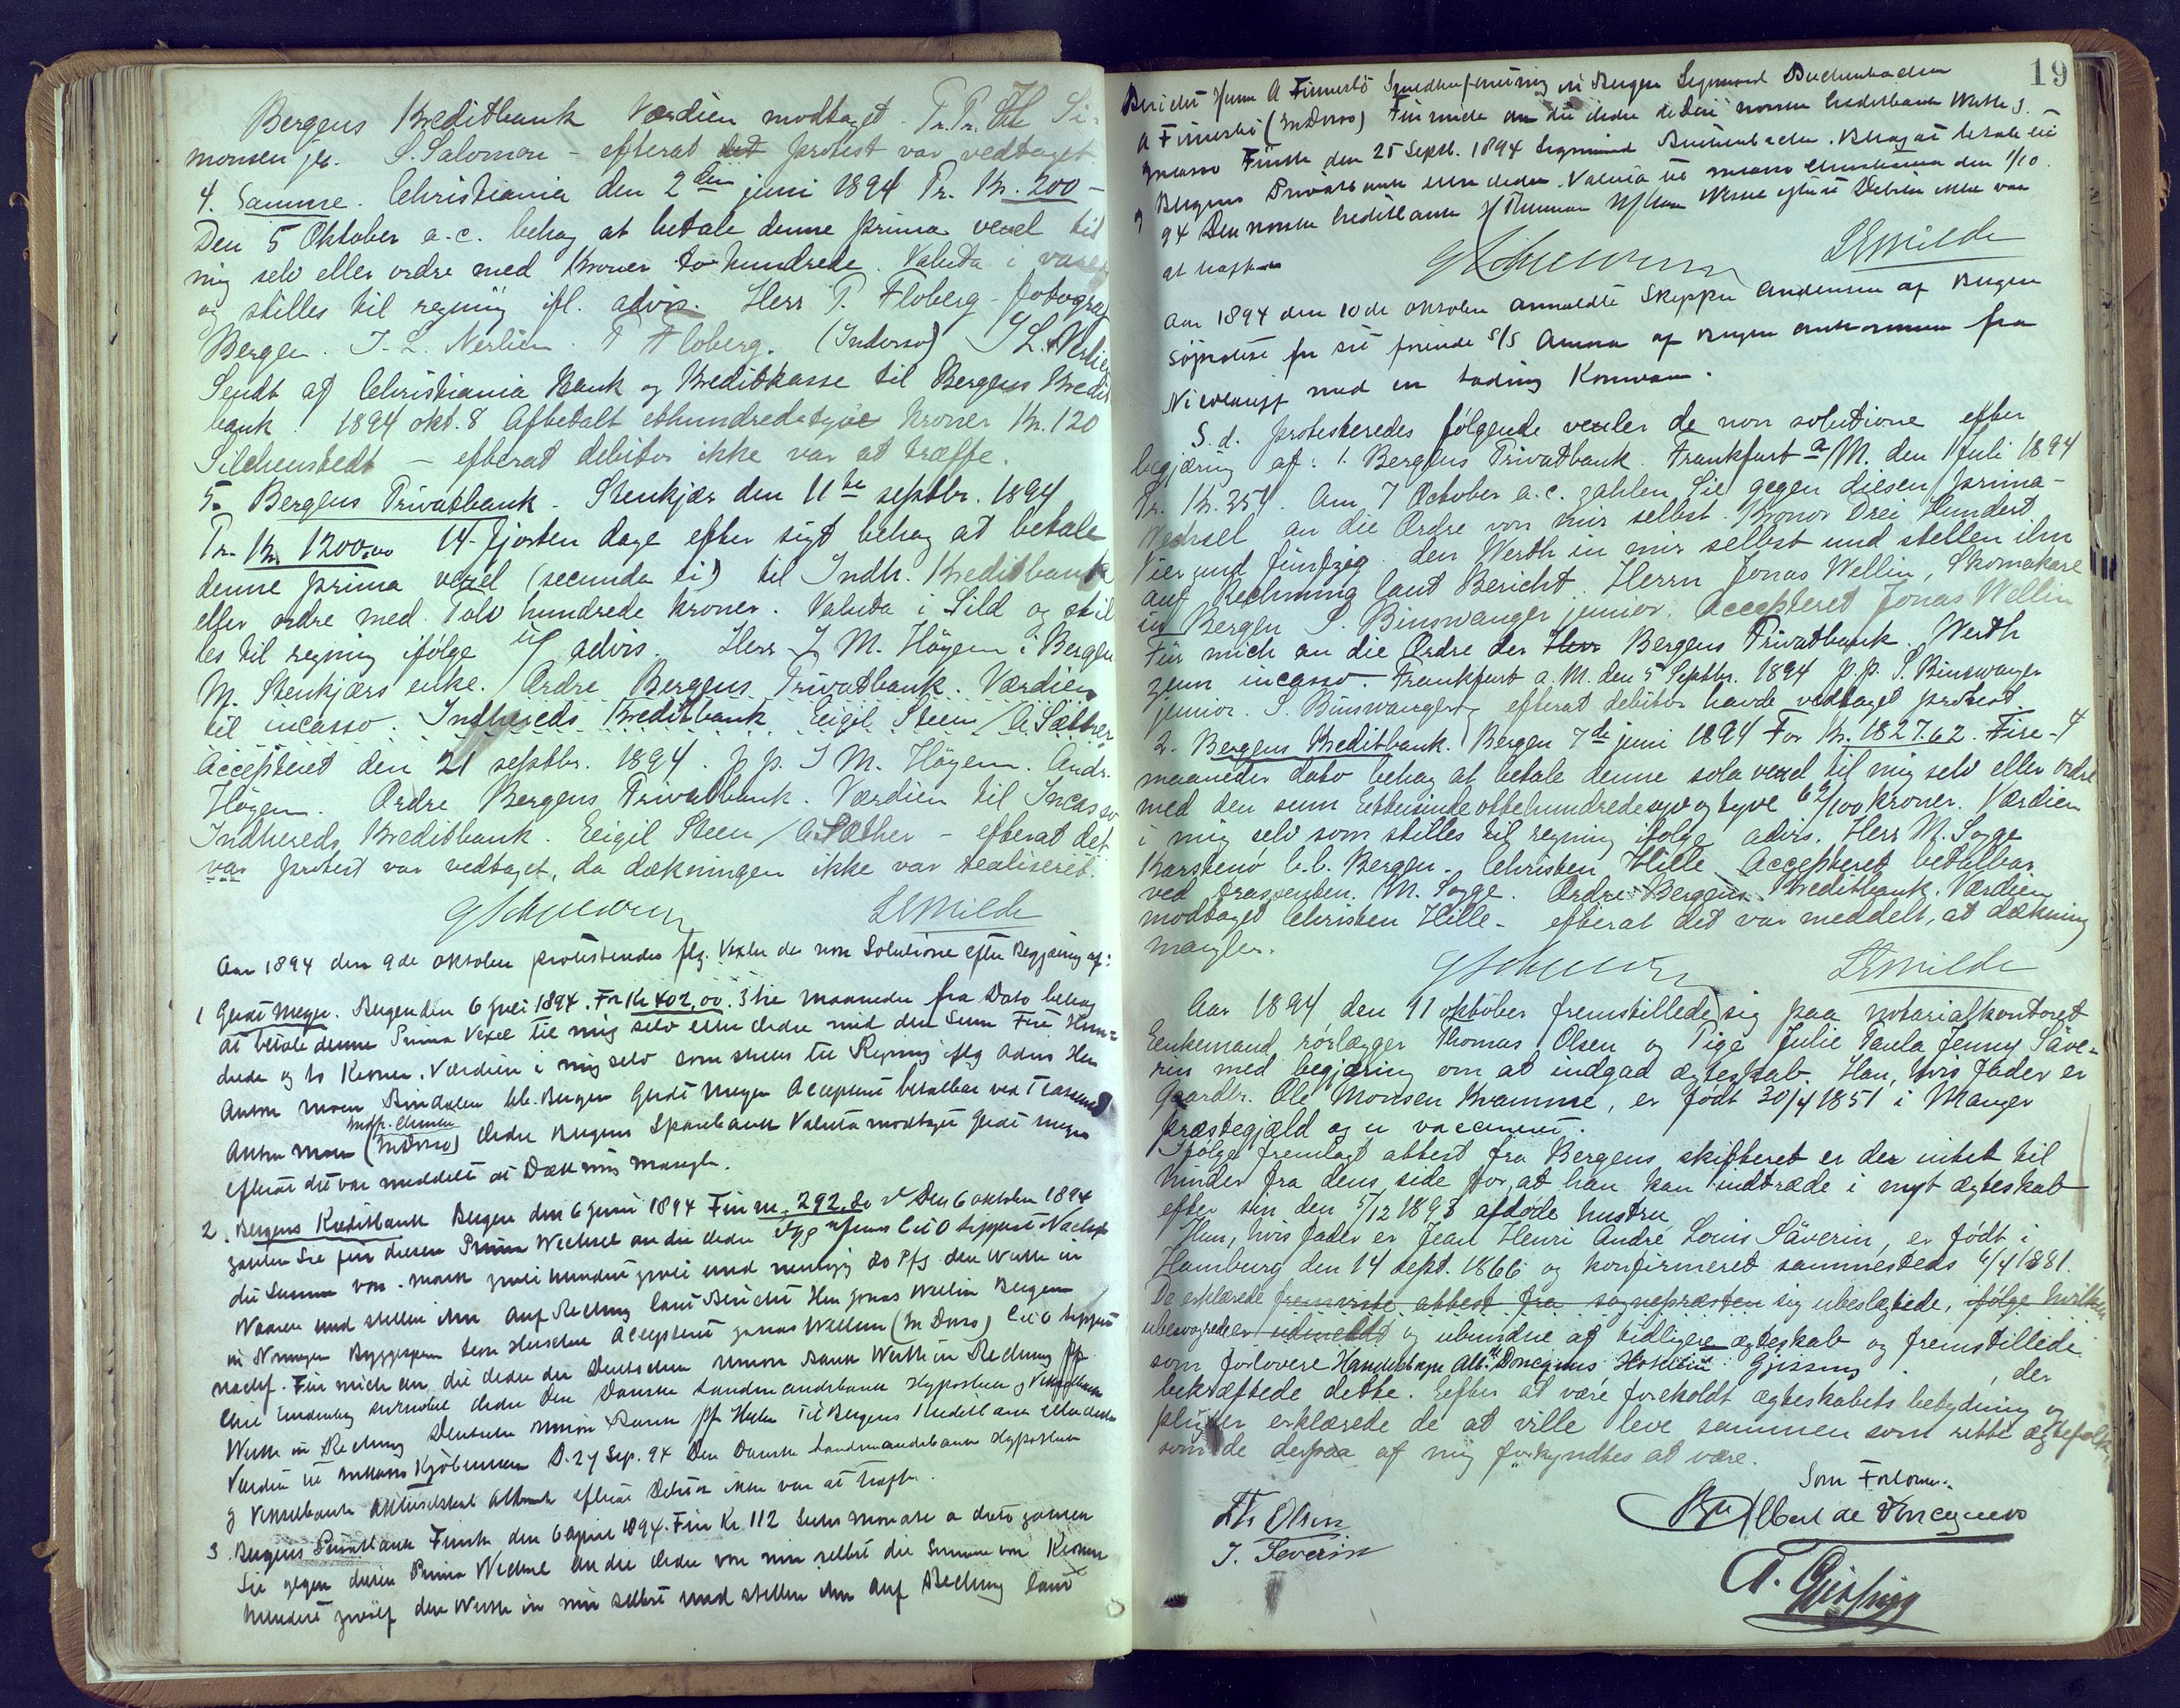 Bergens Kreditbank Værdien modtaget. Pr. Pr. Si-
monsen jr. S. Salomon - efterat det protest var vedtaget.
4. Samme. Christiania den 2den juni 1894 Pr. Kr. 200 -
Den 5 Oktober a.c. behag at betale denne prima vexel til
mig selv eller ordre med Kroner to hundrede. Valuta i varer
og stilles til regning ifl. advis. Herr P. Floberg - fotograf
Bergen. J. L. Nerlien. P Floberg. (Indosso) J L. Nerlien
Sendt af Christiania Bank og Kreditkasse til Bergens Kredit
bank. 1894 okt. 8 Afbetalt ethundredetyve kroner Kr. 120
Silchenstedt - efterat debitor ikke var at træffe.
5. Bergens Privatbank. Stenkjær den 11te septbr. 1894
Pr. Kr. 1200.00 14 fjorten dage efter sigt behag at betale
denne prima vexel (secunda ei) til Indh. Kreditbank
eller ordre med Tolv hundrede kroner. Valuta i Sild og stil
les til regning ifølge advis. Herr J M. Höyem i Bergen
M. Stenkjærs enke. Ordre Bergens Privatbank. Værdien
til incasso. Indhereds Kreditbank Eeigil Steen / A. Sæther
Accepteret den 21 septbr. 1894. p p. J M. Höyem. Andr.
Höyem. Ordre Bergens Privatbank. Værdien til Incasso
Indhereds Kreditbank. Eeigil Steen / A Sæther - efterat det
var protest var vedtaget, da dækningen ikke var realiseret.
LEMilde
Aar 1894 den 9de oktober protesteredes flg. Vexler de non Solutione efter Begjæring af:
1 Gerdt Meyer. Bergen den 6 Juli 1894. For Kr 402,00. 3 tre maaneder fra Dato behag
at betale denne Prima Vexel til mig selv eller Ordre med den Sum Fire Hun-
drede og to Kroner. Værdien i mig selv som stilles til Regning iflg Advis Herr
Anton Moen Bergen Gerdt Meyer Accepteret betalbar ved
Anton Moen (Indosso) Ordre Bergens Sparebank Valuta modtaget Gerdt Meyer
efterat det var meddelt at Dækning mangler.
2. Bergens Kreditbank Bergen den 6 Juni 1894 Für M. 292.80 Den 6 oktober 1894
zahlen Sie für diesen Prima Wechsel an die Ordre
die Summe von Mark zwei hundert zwei und neunzig 80 Pfg den Werth in
Waaren und stellen ihn auf Rechnung laut Bericht Herr Jonas Wellin Bergen
in Norwegen Accepteret Jonas Wellin (In Dosso)
nachf. Für mich an die Ordre der Deutschen Union Bank Werth in Rechnung pp
Ordre Den Danske Landmandsbank Hypothek og Vekselbank
Werth in Rechnung Deutsche Union Bank pp Til Bergens Kreditbank eller Ordre
Værdi til Inkasso Kjöbenhavn D. 27 Sep. 94 Den Danske Landmandsbank Hypothek
og Vekselbank Aktieselskab efterat Debitor ikke var at træffe.
3. Bergens Privatbank Fürth den 6 April 1894. Für Kr. 112 Sechs Monate a dato zahlen
Sie gegen diesen Prima Wechsel an die Ordre von mir selbst die Summe von Kronen
hundert zwölf den Werth in mir selbst und stellen ihn auf Rechnung laut
19
Bericht Herrn A Finnesbö in Bergen Sigmund
A Finnesbö (In Dosso) Für mich an die Ordre norske Creditbank Werth z.
Incasso Fürth den 25 Septb. 1894 Sigmund . Behag at betale til
Bergens Privatbank eller Ordre. Valuta til incasso Christiania den 1/10.
94 Den norske Creditbank efterat Debitor ikke var
at træffe
LEMilde
Aar 1894 den 10de oktober anmeldte Skipper Andersen af Bergen
Søprotest for sit førende S/S Anna af Bergen ankommen fra
Nicolaieff med en Ladning Kornvarer.
S. d. protesteredes følgende vexler de non solutione efter
begjæring af: 1. Bergens Privatbank. Frankfurt a/M. den 1 Juli 1894
Pr. Kr. 354. Am 7 October a.c. zahlen Sie gegen diesen prima-
Wechsel an die Ordre von mir selbst. Kronor Drei Hundert
Vier und fünfzig den Werth in mir selbst und stellen ihn
auf Rechnung laut Bericht. Herrn Jonas Wellin, Skomakare
in Bergen S. Binswanger junior. Accepteret Jonas Wellin
Für mich an die Ordre der Herr Bergens Privatbank. Werth
zum incasso. Frankfurt a. M. den 5 Septbr. 1894 p.p. S. Binswanger
junior. S. Binswanger efterat debitor havde vedtaget protest.
2. Bergens Kreditbank. Bergen 7de juni 1894 For Kr. 1827.62. Fire - 4
maaneder dato behag at betale denne sola vexel til mig selv eller ordre
med den sum Ettusindeottehundredesyv og tyve 62/100 Kroner. Værdien
i mig selv som stilles til regning ifølge advis. Herr M. Sogge
Karstenø h.h. Bergen. Christen Hille Accepteret betalbar
ved trassenten. M. Sogge. Ordre Bergens Kreditbank. Værdien
modtaget Christen Hille - efterat det var meddelt, at dækning
mangler.
LEMilde
Aar 1894 den 11 oktober fremstillede sig paa notarialkontoret
Enkemand, rørlægger Thomas Olsen og Pige Julie Paula Jenny Säve-
rin med begjæring om at indgaa ægteskab. Han, hvis fader er
Gaardbr. Ole Monsen Kramme, er født 30/4 1851 i Manger
præstegjæld og er vaccineret.
Ifølge fremlagt attest fra Bergens skifteret er der intet til
hinder fra dens side for, at han kan indtræde i nyt ægteskab
efter sin den 5/12 1893 afdøde hustru.
Hun, hvis fader er Jean Henri André Louis Säverin, er født i
Hamburg den 14 sept. 1866 og konfirmeret sammesteds 6/4 1881.
De erklærede fremviste attest fra sognepræsten sig ubeslægtede, ifølge hvilken
ubesvogrede er udmeldt og ubundne af tidligere ægteskab og fremstillede
som forlovere Gjessing, der
bekræftede dette. Efter at være foreholdt ægteskabets betydning og
pligter erklærede de at ville leve sammen som rette ægtefolk,
som de derpaa af mig forkyndtes at være.
Som Forlovere:
Th Olsen
J. Severin
Albert de
T. Gjessing